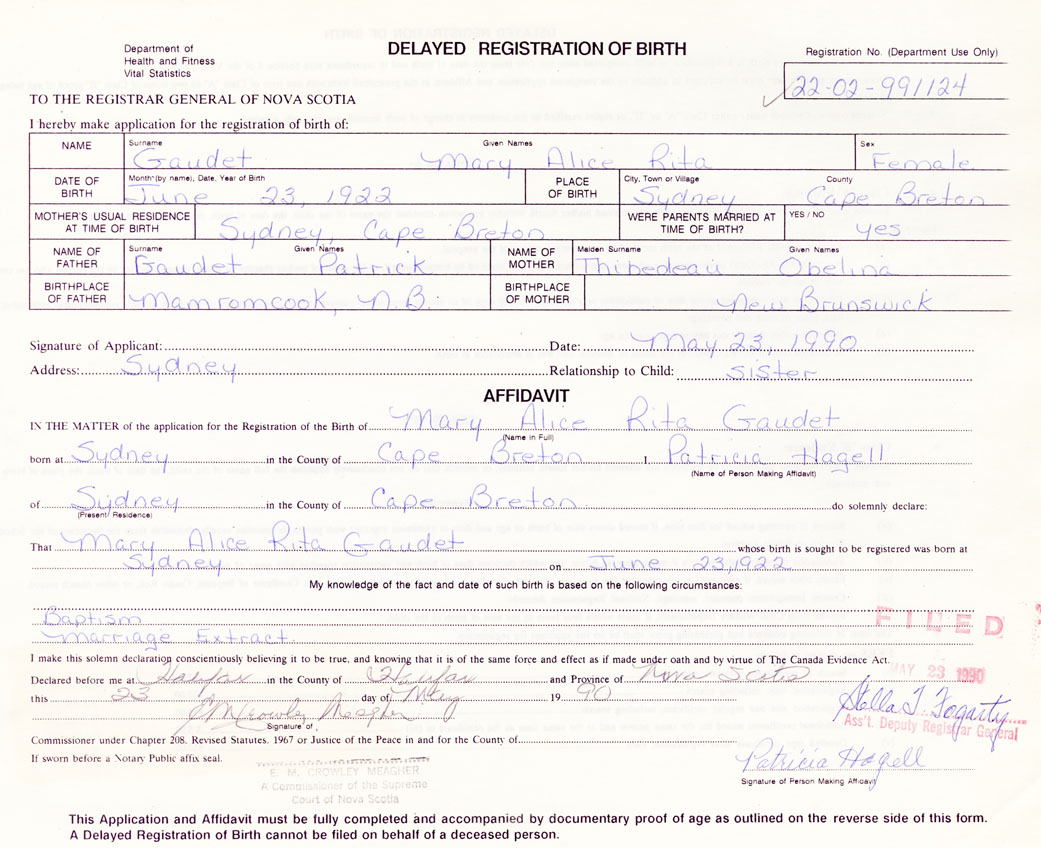 Department of
Health and Fitness
Vital Statistics
DELAYED REGISTRATION OF BIRTH
Registration No. (Department Use Only)
22-02-991124
TO THE REGISTRAR GENERAL OF NOVA SCOTIA
I hereby make application for the registration of birth of:
NAME Surname Gaudet Given Names Mary Alice Rita Sex Female
DATE OF BIRTH Month (by name), Date, Year of Birth June 23, 1922 PLACE OF BIRTH City, Town or Village Sydney County Cape Breton
MOTHER'S USUAL RESIDENCE AT TIME OF BIRTH Sydney, Cape Breton WERE PARENTS MARRIED AT TIME OF BIRTH? YES / NO yes
NAME OF FATHER Surname Gaudet Given Names Patrick NAME OF MOTHER Maiden Surname Thibedeau Given Names Obelina
BIRTHPLACE OF FATHER Mamromcook, N.B. BIRTHPLACE OF MOTHER New Brunswick
Signature of Applicant: Date: May 23, 1990
Address: Sydney Relationship to Child: sister
AFFIDAVIT
IN THE MATTER of the application for the Registration of the Birth of Mary Alice Rita Gaudet
(Name in Full)
born at Sydney in the County of Cape Breton I, Patricia Hagell
(Name of Person Making Affidavit)
of Sydney in the County of Cape Breton do solemnly declare:
(Present Residence)
That Mary Alice Rita Gaudet whose birth is sought to be registered was born at
Sydney on June 23, 1922
My knowledge of the fact and date of such birth is based on the following circumstances:
Baptism
Marriage Extract
FILED
I make this solemn declaration conscientiously believing it to be true, and knowing that it is of the same force and effect as if made under oath and by virtue of The Canada Evidence Act.
MAY 23 1990
Declared before me at Halifax in the County of Halifax and Province of Nova Scotia
this 23 day of May 19 90
E M Crowley Meagher
Stella T. Fogarty
Signature of
Ass't. Deputy Registrar General
Commissioner under Chapter 208, Revised Statutes, 1967 or Justice of the Peace in and for the County of
If sworn before a Notary Public affix seal.
E. M. CROWLEY MEAGHER
A Commissioner of the Supreme
Court of Nova Scotia
Patricia Hagell
Signature of Person Making Affidavit
This Application and Affidavit must be fully completed and accompanied by documentary proof of age as outlined on the reverse side of this form.
A Delayed Registration of Birth cannot be filed on behalf of a deceased person.